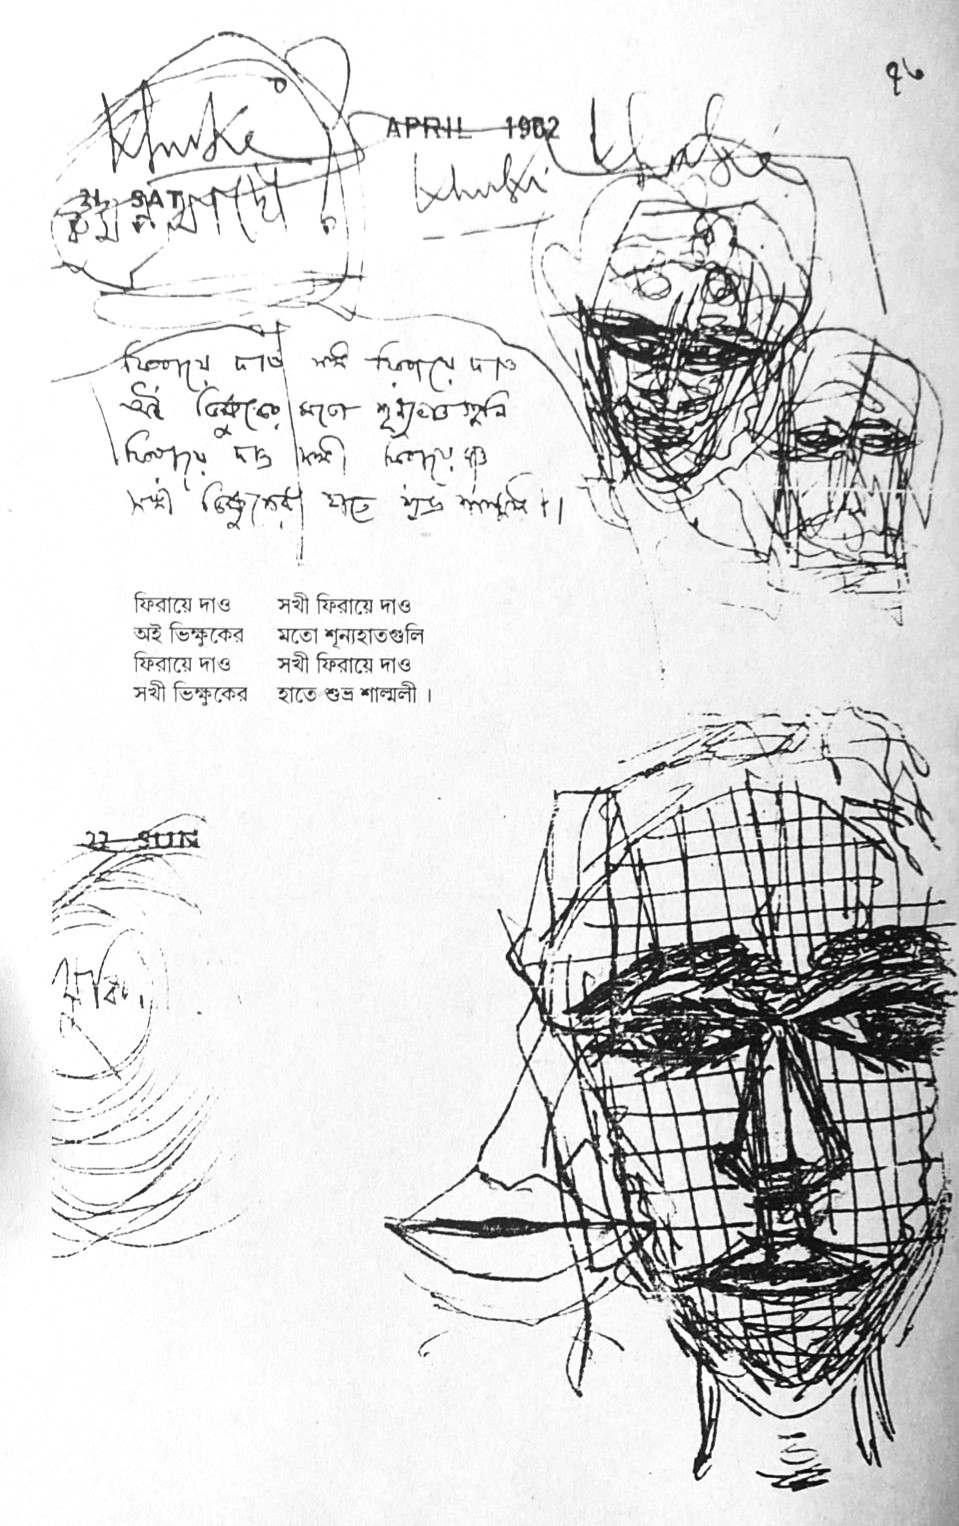 ৭৬
Khuki
APRIL 1962
Khuki
Khuki
21 SAT
ফিরায়ে দাও সখী ফিরায়ে দাও
অই ভিক্ষুকের মতো শূন্যহাতগুলি
ফিরায়ে দাও সখী ফিরায়ে দাও
সখী ভিক্ষুকের হাতে শুভ্র শাল্মলী ।।
ফিরায়ে দাও সখী ফিরায়ে দাও
অই ভিক্ষুকের মতো শূন্যহাতগুলি
ফিরায়ে দাও সখী ফিরায়ে দাও
সখী ভিক্ষুকের হাতে শুভ্র শাল্মলী ।
22 SUN